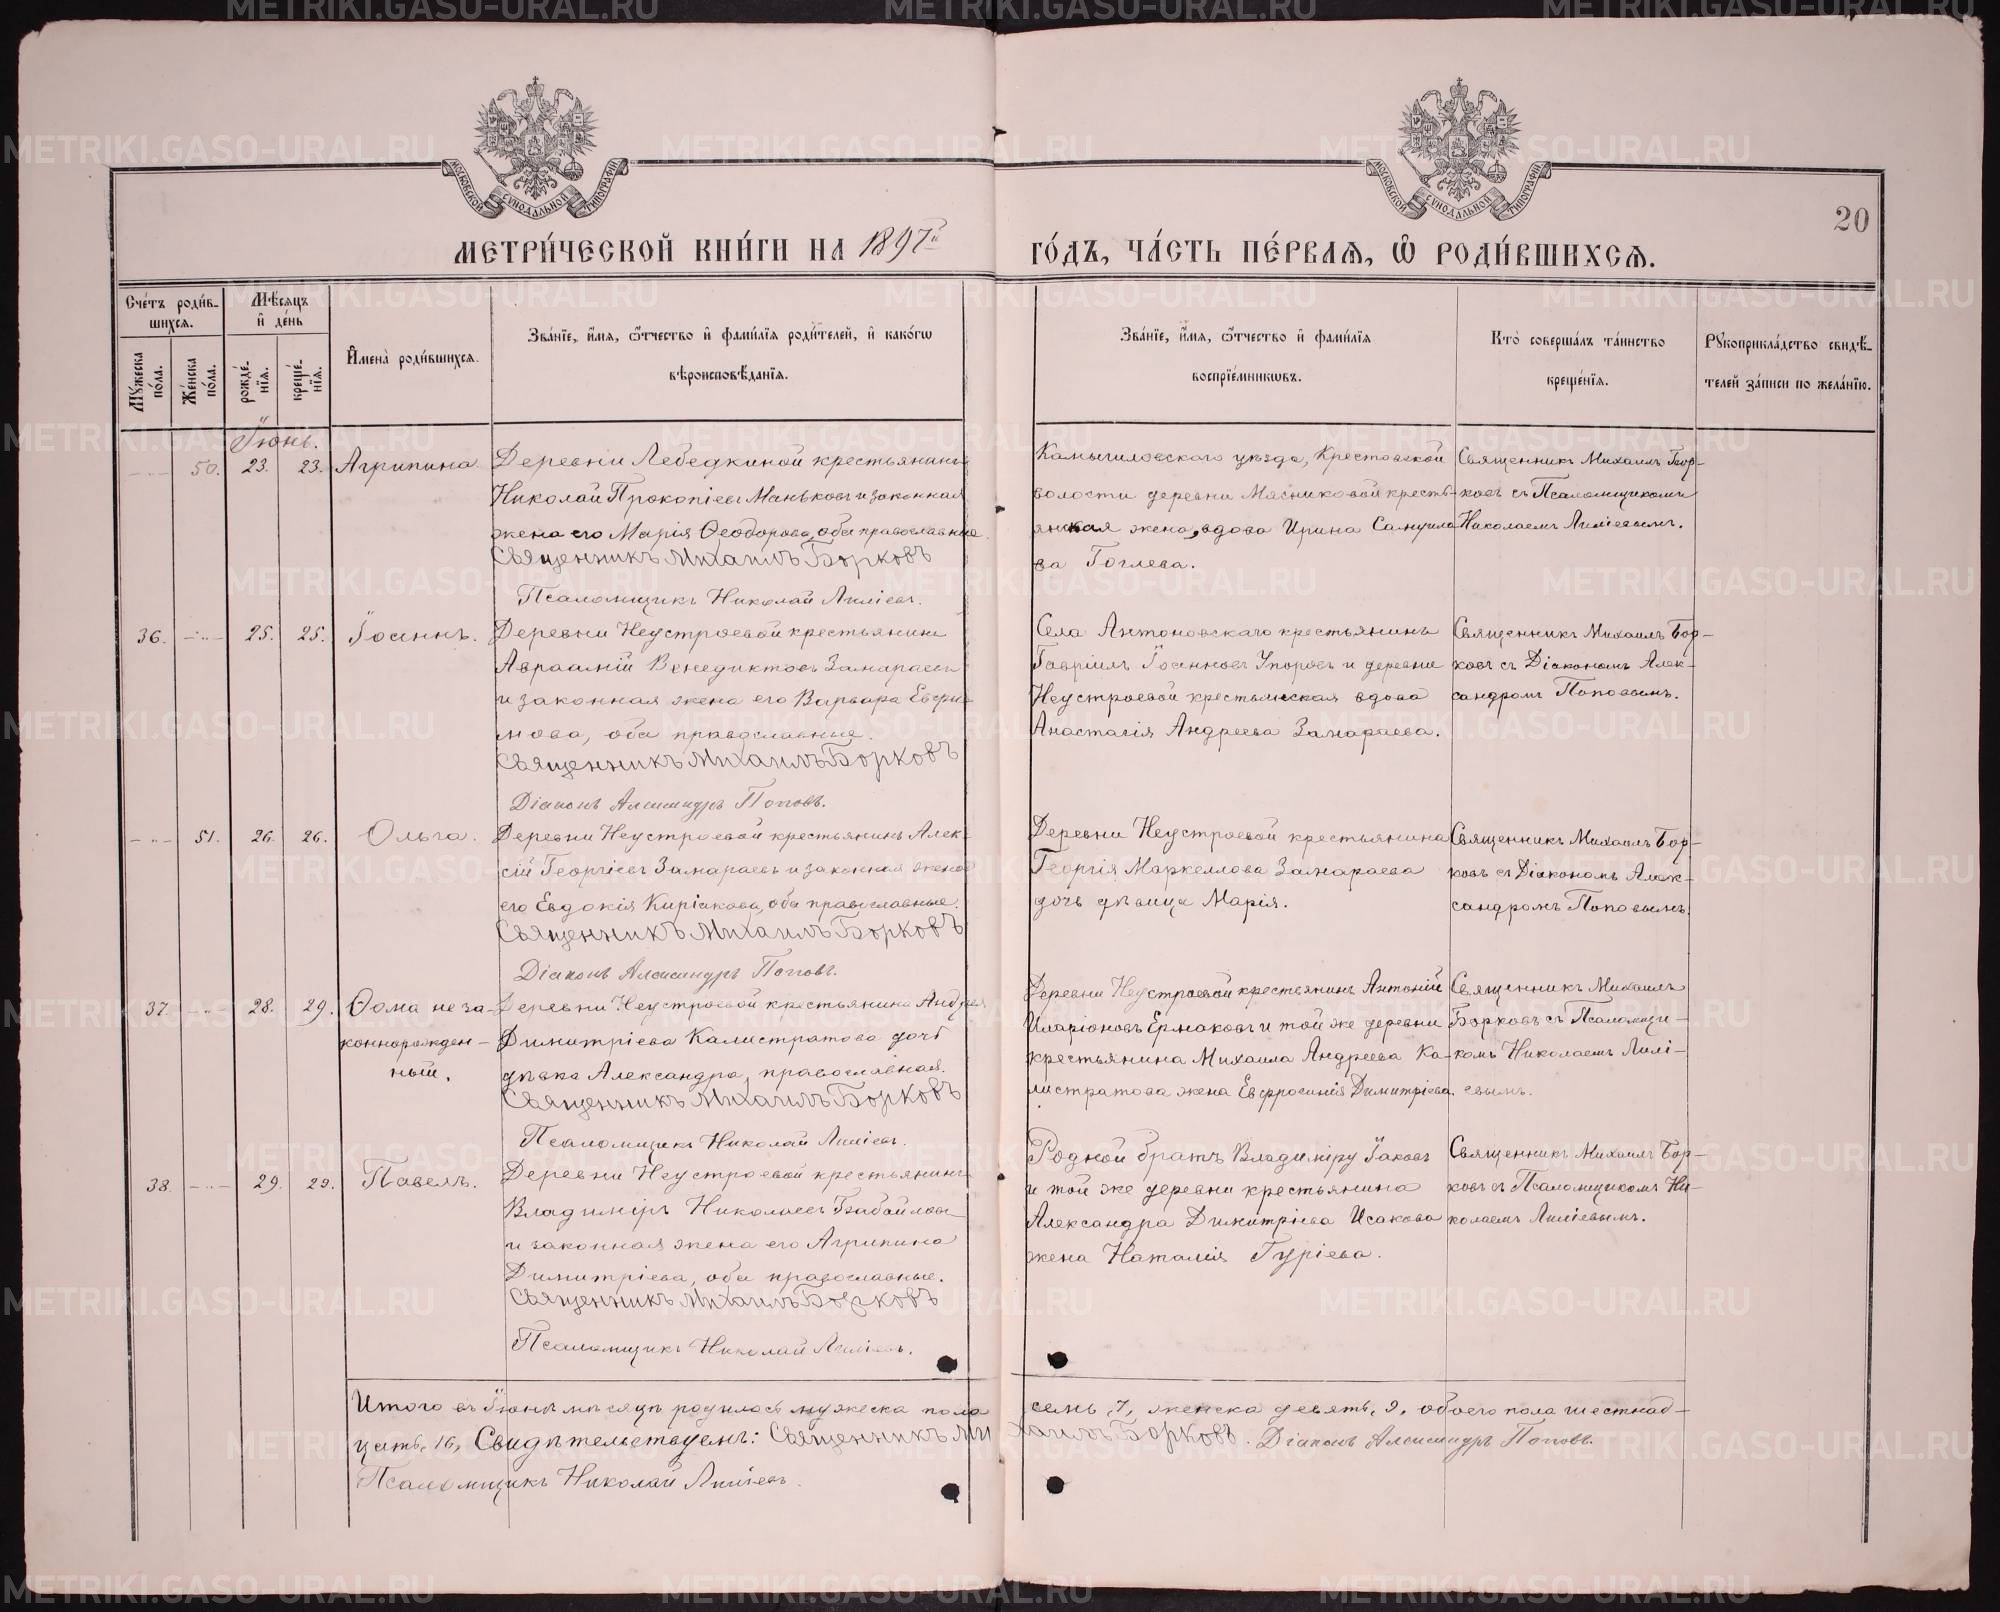 МОСКОВСКОЙ СѴНОДАЛЬНОЙ ТИПОГРАФІИ
МОСКОВСКОЙ СѴНОДАЛЬНОЙ ТИПОГРАФІИ
20
МЕТРИ́ЧЕСКОЙ КНИ́ГИ НА 1897й ГО́ДЪ, ЧА́СТЬ ПЕ́РВАѦ, Ѡ҆ РОДИ́ВШИХСѦ.
Сче́тъ роди́в-
шихсѧ.
Мѣ́сѧцъ
и҆ де́нь
Мꙋ́жеска
по́ла.
Же́нска
по́ла.
рожде́-
нїѧ.
креще́-
нїѧ.
И҆мена̀ роди́вшихсѧ.
Зва́нїе, и҆́мѧ, ѻ҆́тчество и҆ фами́лїѧ роди́телей, и҆ како́гѡ
вѣроисповѣ́данїѧ.
Зва́нїе, и҆́мѧ, ѻ҆́тчество и҆ фами́лїѧ
воспрїе́мникѡвъ.
Кто̀ соверша́лъ та́инство
креще́нїѧ.
Рꙋкоприкла́дство свидѣ́-
телей за́писи по жела́нїю.
Іюнь.
50. 23. 23. Агрипина
Деревни Лебедкиной крестьянинъ
Николай Прокопіевъ Маньковъ и законная
жена его Марія Ѳеодорова, оба православные.
Священникъ Михаилъ Борковъ
Псаломщикъ Николай Лиліевъ.
Камышловскаго уѣзда, Крестовской
волости деревни Мясниковой кресть-
янская жена, вдова Ирина Самуило
ва Гоглева.
Священникъ Михаилъ Бор-
ковъ съ Псаломщикомъ
Николаемъ Лиліевымъ.
36. 25. 25. Іоаннъ.
Деревни Неустроевой крестьянинъ
Авраамій Венедиктовъ Замараевъ
и законная жена его Варвара Евфи-
мова, оба православные.
Священникъ Михаилъ Борковъ
Діаконъ Александръ Поповъ.
Села Антоновскаго крестьянинъ
Гавріилъ Іоанновъ Упоровъ и деревни
Неустроевой крестьянская вдова
Анастасія Андреева Замараева.
Священникъ Михаилъ Бор-
ковъ съ Діакономъ Алек-
сандромъ Поповымъ.
51. 26. 26. Ольга.
Деревни Неустроевой крестьянинъ Алек-
сій Георгіевъ Замараевъ и законная жена
его Евдокія Киріакова, оба православные.
Священникъ Михаилъ Борковъ
Діаконъ Александръ Поповъ.
Деревни Неустроевой крестьянина
Георгія Маркеллова Замараева
дочь дѣвица Марія.
Священникъ Михаилъ Бор-
ковъ съ Діакономъ Алек-
сандромъ Поповымъ.
37. 28. 29. Ѳома неза-
коннорожден-
ный.
Деревни Неустроевой крестьянина Андрея
Димитріева Калистратова дочь
дѣвка Александра, православная.
Священникъ Михаилъ Борковъ
Псаломщикъ Николай Лиліевъ.
Деревни Неустроевой крестьянинъ Антоній
Иларіоновъ Ермаковъ и той же деревни
крестьянина Михаила Андреева Ка-
листратова жена Евфросинія Димитріева.
Священникъ Михаилъ
Борковъ съ Псаломщи-
комъ Николаемъ Лилі-
евымъ.
38. 29. 29. Павелъ.
Деревни Неустроевой крестьянинъ
Владиміръ Николаевъ Бабайловъ
и законная жена его Агрипина
Димитріева, оба православные.
Священникъ Михаилъ Борковъ
Псаломщикъ Николай Лиліевъ.
Родной братъ Владиміру Іаковъ
и той же деревни крестьянина
Александра Димитріева Исакова
жена Наталія Гуріева.
Священникъ Михаилъ Бор-
ковъ съ Псаломщикомъ Ни-
колаемъ Лиліевымъ.
Итого въ Іюнѣ мѣсяцѣ родилось мужеска пола семь, 7, женска девять, 9, обоего пола шестнад-
цать, 16, Свидѣтельствуемъ: Священникъ Михаилъ Борковъ. Діаконъ Александръ Поповъ.
Псаломщикъ Николай Лиліевъ.
METRIKI.GASO-URAL.RU